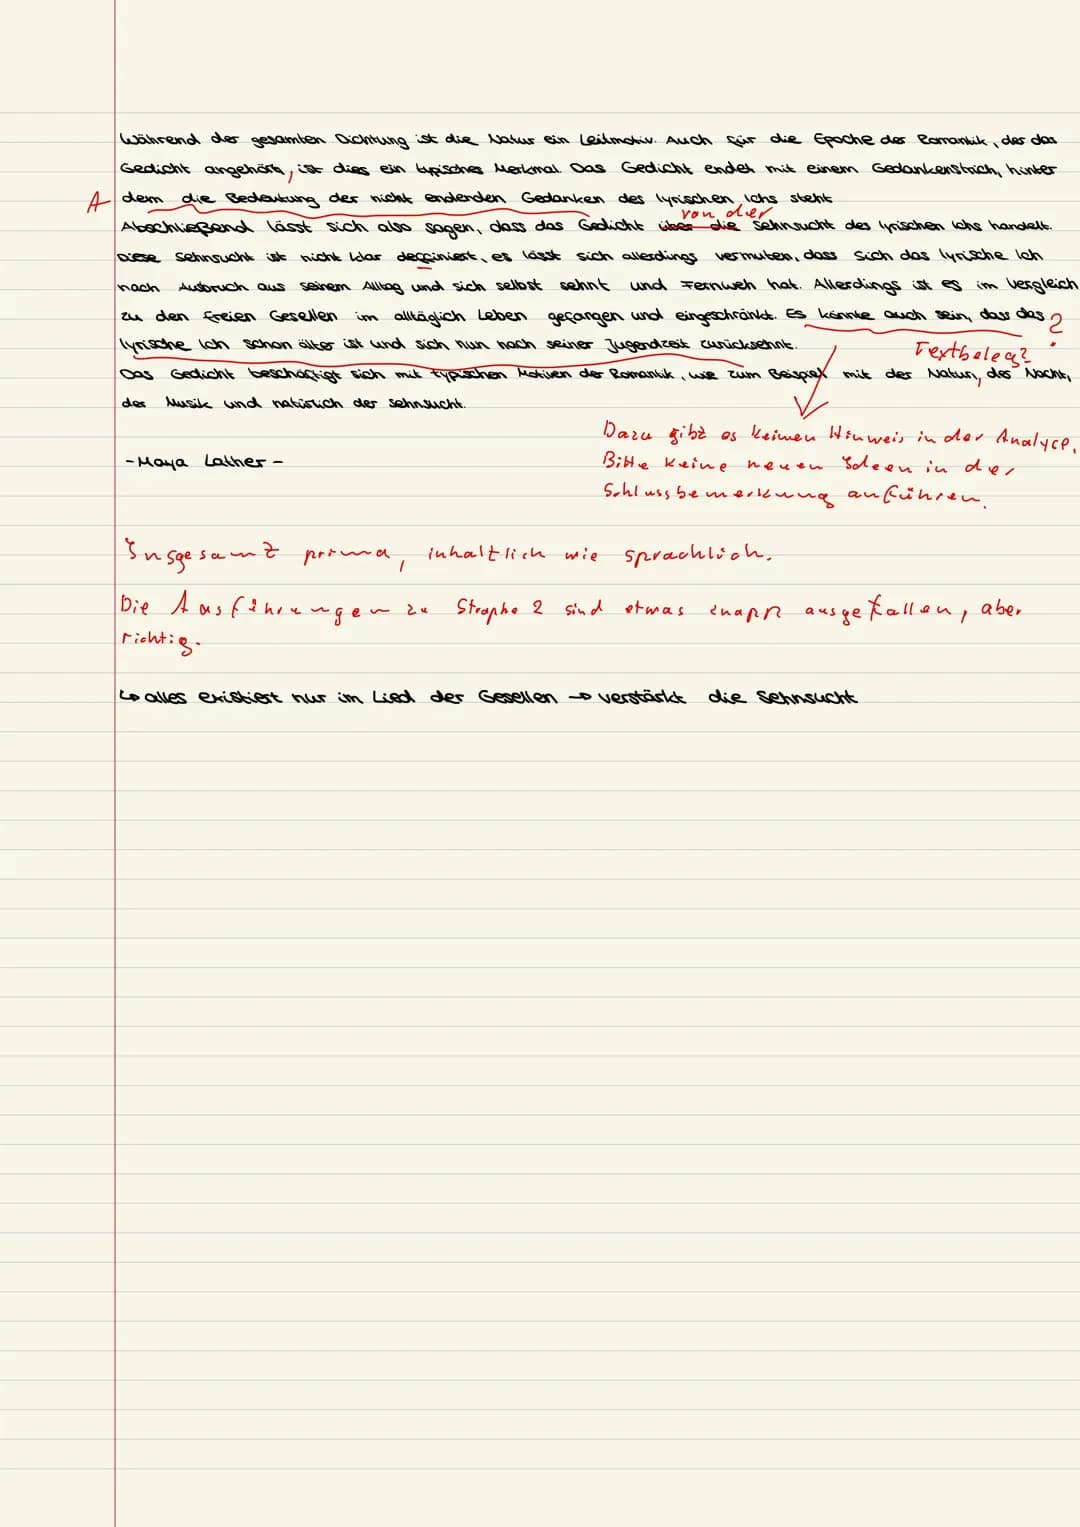 Während der gesamten Dichtung ist die Natur ein Leitmotiv. Auch für die Epoche der Romantik, der das
Gedicht angehört, ist dies ein typisches Merkmal Das Gedicht endet mit einem Gedankenstrich, hinter
A dem die Bedeutung der nicht endenden Gedanken des lyrischen Ichs steht
von der
Abschließend lässt sich also sagen, dass das Gedicht über die Sehnsucht des lyrischen Ichs handelt.
Diese Sehnsucht ist nicht klar deffiniert, es lässt sich allerdings vermuten, dass sich das lyrische Ich
nach Ausbruch aus seinem Alltag und sich selbst sehnt und Fernweh hat. Allerdings ist es im Vergleich
zu den freien Gesellen im alltäglich Leben gefangen und eingeschränkt. Es könnte auch sein, dass das ?
lyrische Ich schon älter ist und sich nun nach seiner Jugendzeit zurücksehnt.
Textbeleg?
Das Gedicht beschäftigt sich mit typischen Motiven der Romantik, wie zum Beispiel mit der Natur, der Nacht,
der Musik und natürlich der Sehnsucht.
Dazu gibt es keinen Hinweis in der Analyse.
- Maya Lather -
Bitte keine neuen Ideen in der
Schlussbemerkung anführen.
Insgesamt prima, inhaltlich wie sprachlich.
Die Ausführungen zu Strophe 2 sind etwas knapp ausgefallen, aber
richtig.
↳ alles existiert nur im Lied der Gesellen → verstärkt die Sehnsucht